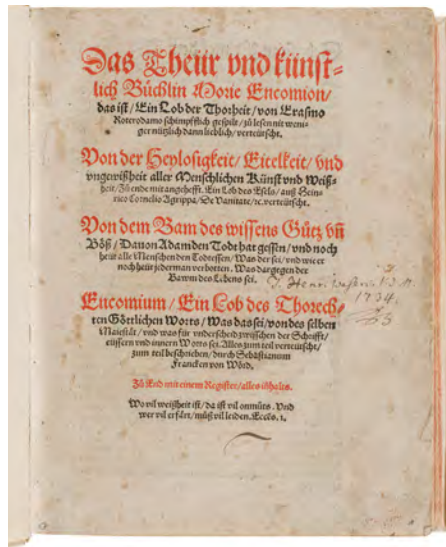 Das Theür vnd künst-
lich Büchlin Morie Encomion/
das ist/ Ein Lob der Thorheit/ von Erasmo
Roterodamo schimpfflich gespilt/ zů lesen nit weni-
ger nützlich dann lieblich/ verteütscht.
Von der Heylosigkeit/ Eitelkeit/ vnd
vngewißheit aller Menschlichen Künst vnd Weiß-
heit/ Zů ende mit angehefft. Ein Lob des Esels/ auß Hein-
rico Cornelio Agrippa/ De Vanitate/ ꝛc. verteütscht.
Von dem Bam des wissens Gůtz vñ
Böß/ Dauon Adam den Todt hat gessen/ vnd noch
heüt alle Menschen den Todt essen/ Was der sei/ vnd wie er
noch heüt jederman verbotten. Was dargegen der
Bawm des Lebens sei.
Encomium/ Ein Lob des Thorech-
ten Göttlichen Worts/ Was das sei/ von des selben
Maiestät/ vnd was für vnderscheid zwischen der Schrifft/
eüssern vnd innern Worts sei. Alles zum teil verteütscht/
zum teil beschriben/ durch Sebastianum
Francken von Wörd.
Zů End mit einem Register/ alles inhalts.
Wo vil weißheit ist/ da ist vil onmůts. Vnd
wer vil erfärt/ můß vil leiden. Eccls. 1.
1734.